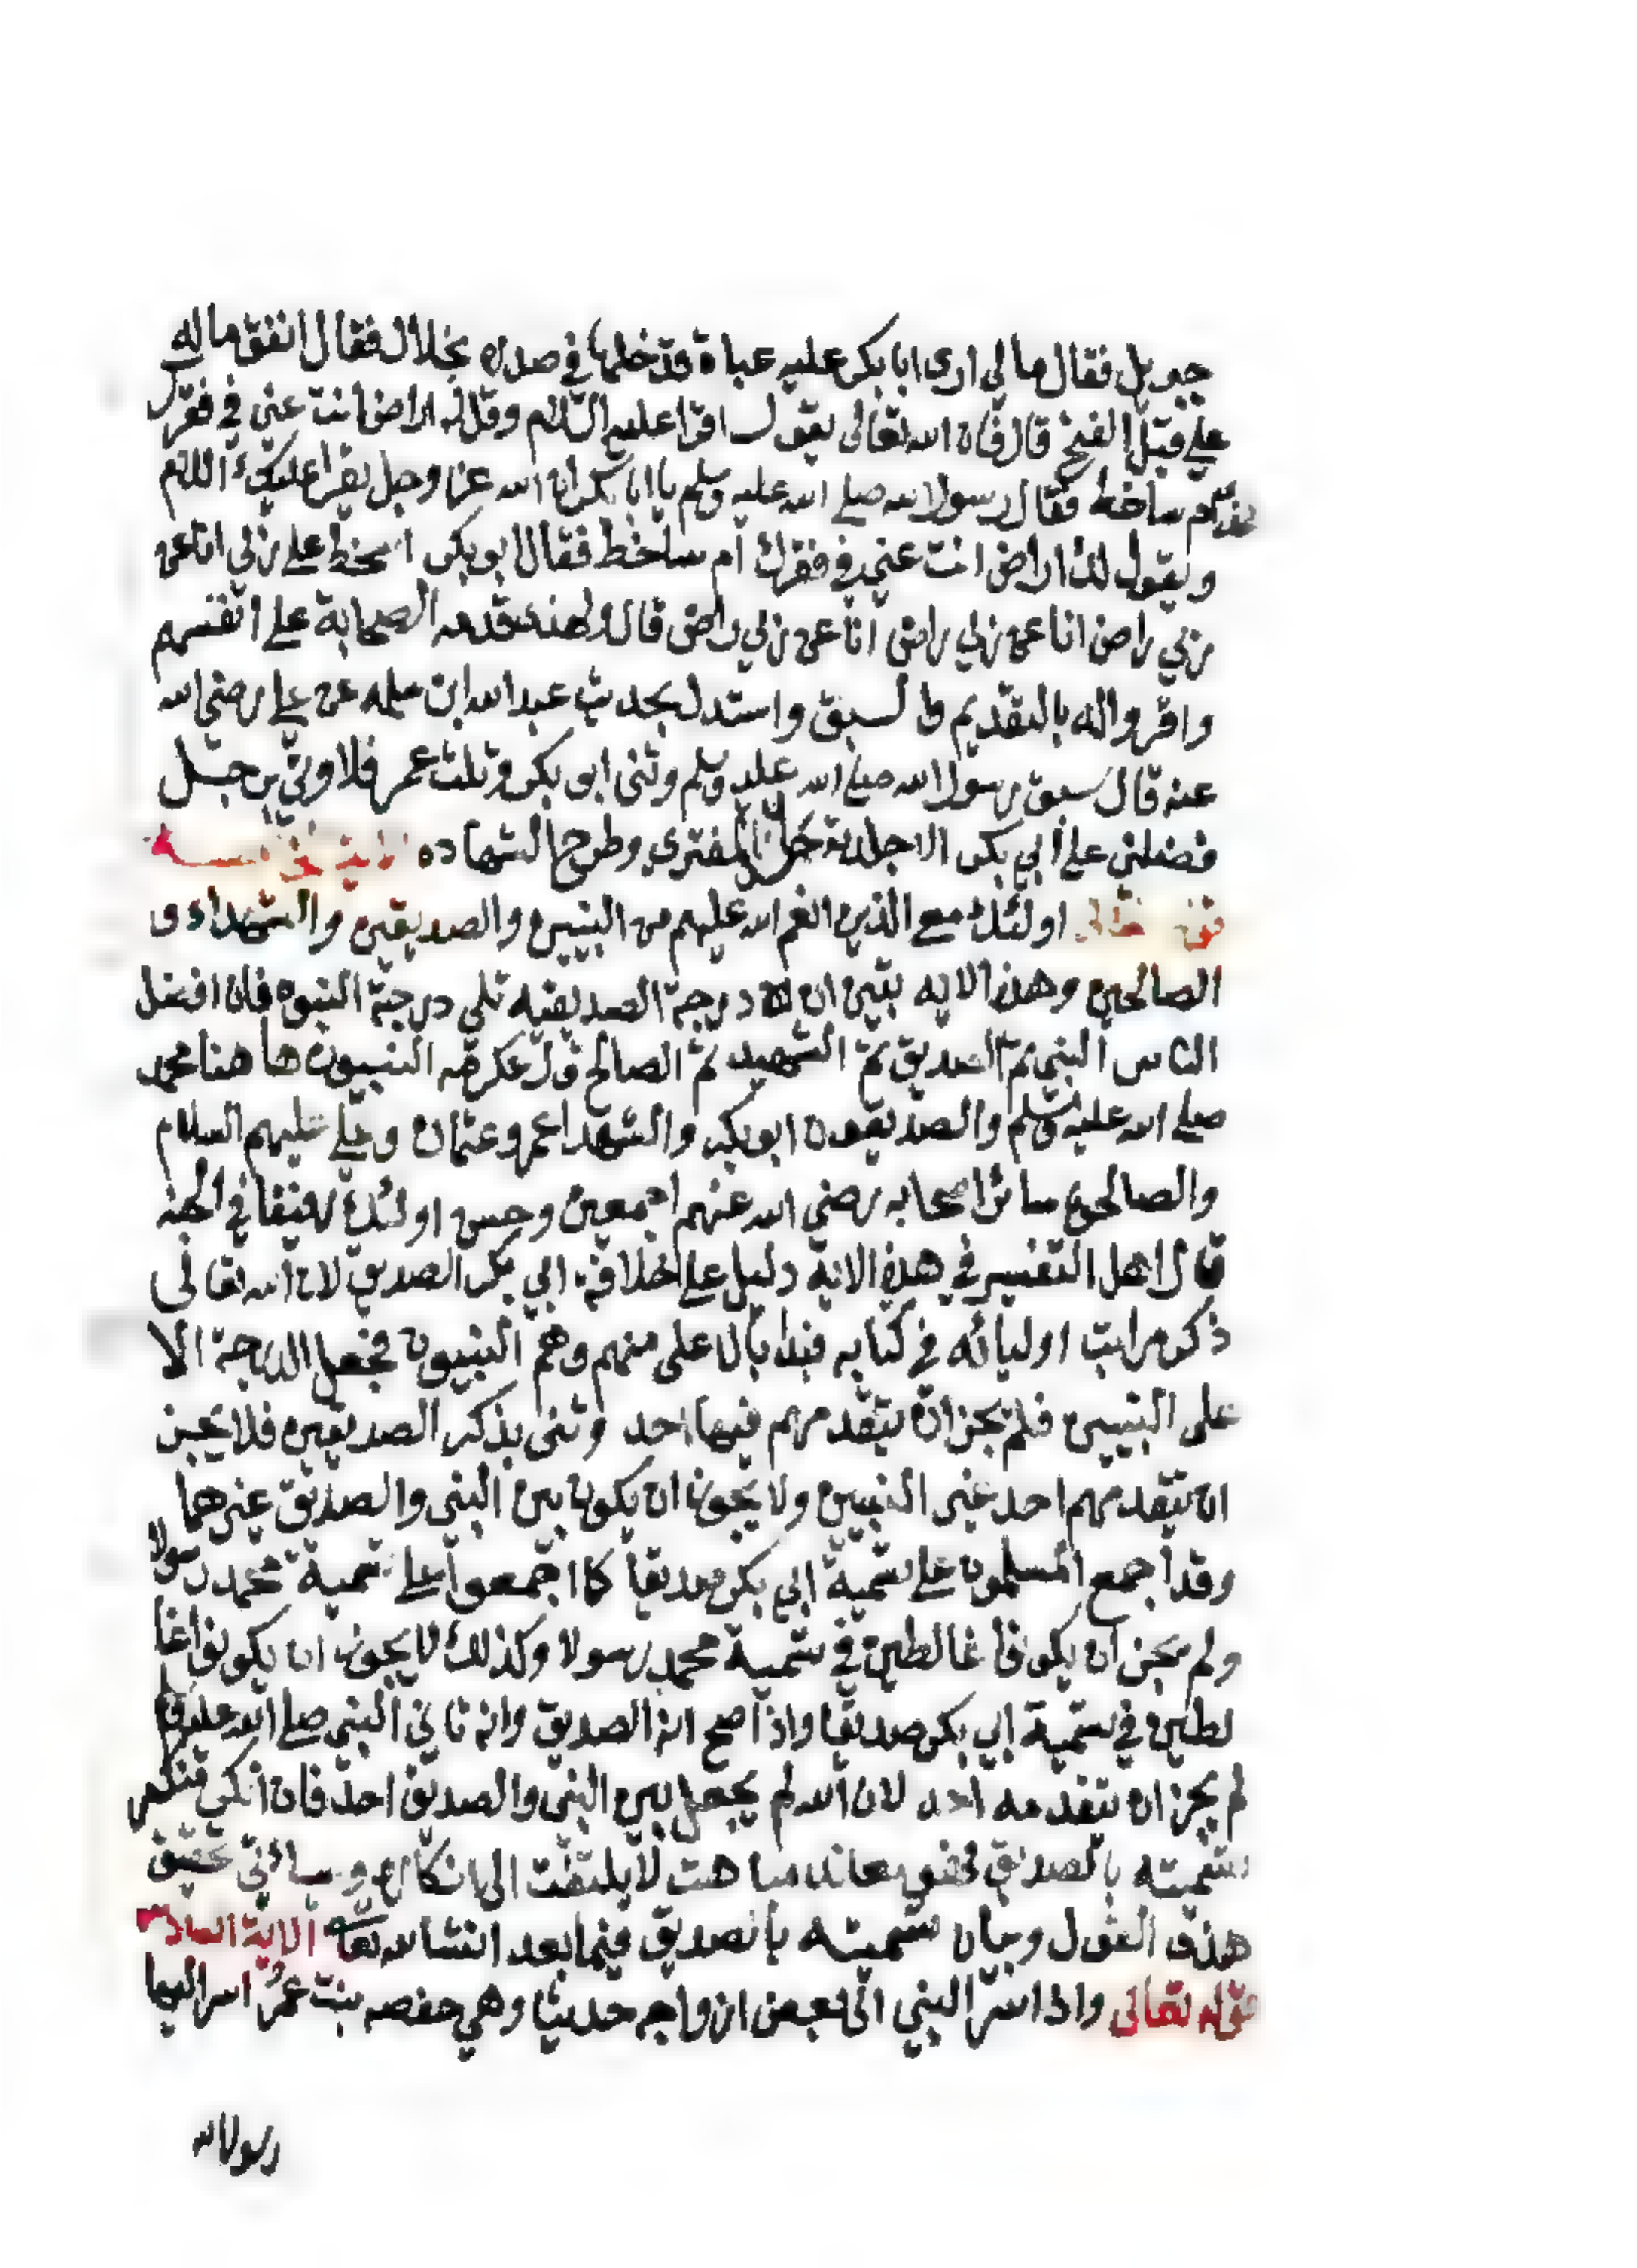 جبريل فقال مالي ارى ابا بكر عليه عباة قد خلها في صدره بخلال فقال انفق ماله
علي قبل الفتح قال فان الله تعالى يقول اقرا عليه السلام وقل له اراض انت عني في فقرك
هذا ام ساخط فقال رسول الله صلى الله عليه وسلم يا ابا بكر ان الله عز وجل يقرا عليك السلام
ويقول لك اراض انت عني في فقرك ام ساخط فقال ابو بكر اسخط على ربي انا عن
ربي راض انا عن ربي راض انا عن ربي راض قال ولهذا قدمه الصحابة على انفسهم
واقروا له بالتقديم والسبق واستدل بحديث عبد الله ابن سلمه عن علي رضي الله
عنه قال سبق رسول الله صلى الله عليه وسلم وثنى ابو بكر وثلث عمر فلا اوتي برجل
فضلني على ابي بكر الا جلدته حد المفتري وطرح الشهاده الاية الخامسة
قوله تعالى اولئك مع الذين انعم الله عليهم من النبيين والصديقين والشهدا و
الصالحين وهذه الايه تبين ان درجة الصديقيه تلي درجة النبوه فان افضل
الناس النبي ثم الصديق ثم الشهيد ثم الصالح قال عكرمه النبيون ها هنا محمد
صلى الله عليه وسلم والصديقون ابو بكر والشهدا عمر وعثمان وعلي عليهم السلام
والصالحون سائر اصحابه رضي الله عنهم اجمعين وحسن اولئك رفيقا في الجنه
قال اهل التفسير في هذه الايه دليل على خلافة ابي بكر الصديق لان الله تعالى
ذكر مراتب اوليائه في كتابه فبدا بالاعلى منهم وهم النبيون فجعل الدرجة الا
على النبيين فلم يجز ان يتقدمهم فيها احد وثنى بذكر الصديقين فلا يجوز
ان يتقدمهم احد غير النبيين ولا يجوز ان يكون بين النبي والصديق غيرها
وقد اجمع المسلمون على تسمية ابي بكر صديقا كما اجمعوا على تسمية محمد رسولا
ولم يجز ان يكونوا غالطين في تسمية محمد رسولا وكذلك لا يجوز ان يكونوا غا
لطين في تسمية ابي بكر صديقا واذا صح انه الصديق وانه ثاني النبي صلى الله عليه وسلم
لم يجز ان يتقدمه احد لان الله لم يجعل بين النبي والصديق احد فان انكر منكر
تسميته بالصديق فهو معاند مباهت لا يلتفت الى انكاره وسياتي تحقيق
هذا القول وبيان تسميته بالصديق فيما بعد انشا الله تعا الاية السادسة
قوله تعالى واذا اسر النبي الى بعض ازواجه حديثا وهي حفصه بنت عمر اسر اليها
رسول الله